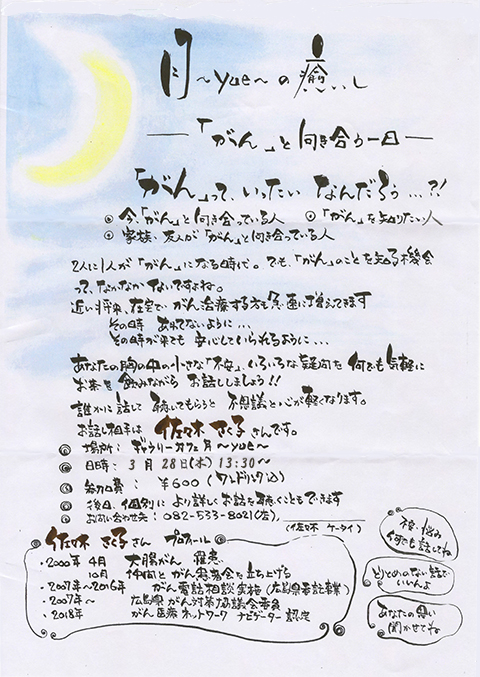 月〜yue〜の癒し
―「がん」と向き合う一日―
「がん」って、いったい なんだろう…?!
今、「がん」と向き合っている人 「がん」を知りたい人
家族、友人が「がん」と向き合っている人
2人に1人が「がん」になる時代。でも、「がん」のことを知る機会
って、なかなかないですよね。
近い将来、在宅でがん治療する方も急速に増えてきます
その時 あわてないように…
その時が来ても 安心していられるように…
あなたの胸の中の小さな「不安」、いろいろな疑問を 何でも気軽に
お茶を飲みながら お話ししましょう!!
誰かに話して 聴いてもらうと 不思議と心が軽くなります。
お話し相手は 佐々木 さく子 さんです。
場所: ギャラリーカフェ 月〜yue〜
日時: 3月28日(木) 13:30〜
参加費: ¥600(ワンドリンク込)
後日、個別に より詳しくお話を聴くこともできます
お問い合わせ先: 082-533-8021(店)、
(佐々木 ケータイ)
佐々木 さく子さん プロフィール
・2000年 4月 大腸がん 罹患
10月 仲間と がん患者会を立ち上げる
・2007年〜2016年 がん電話相談 実施(広島県委託事業)
・2007年〜 広島県がん対策協議会委員
・2018年 がん医療ネットワーク ナビゲーター 認定
不安・悩み
何でも話してね
とりとめのない話で
いいんよ
あなたの思い
聞かせてね